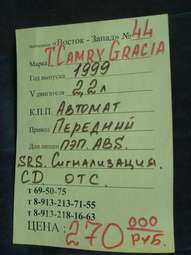 «Восток - Запад» № 44
Марка T.CAMRY GRACIA
Год выпуска 1999
V двигателя 2,2 л
К.П.П. Автомат
Привод Передний
Доп. опции ПЭП. ABS.
SRS. Сигнализация.
CD. ОТС.
т 69-50-75
т 8-913-213-71-55
т 8-913-218-16-63
ЦЕНА: 270 000 РУБ.